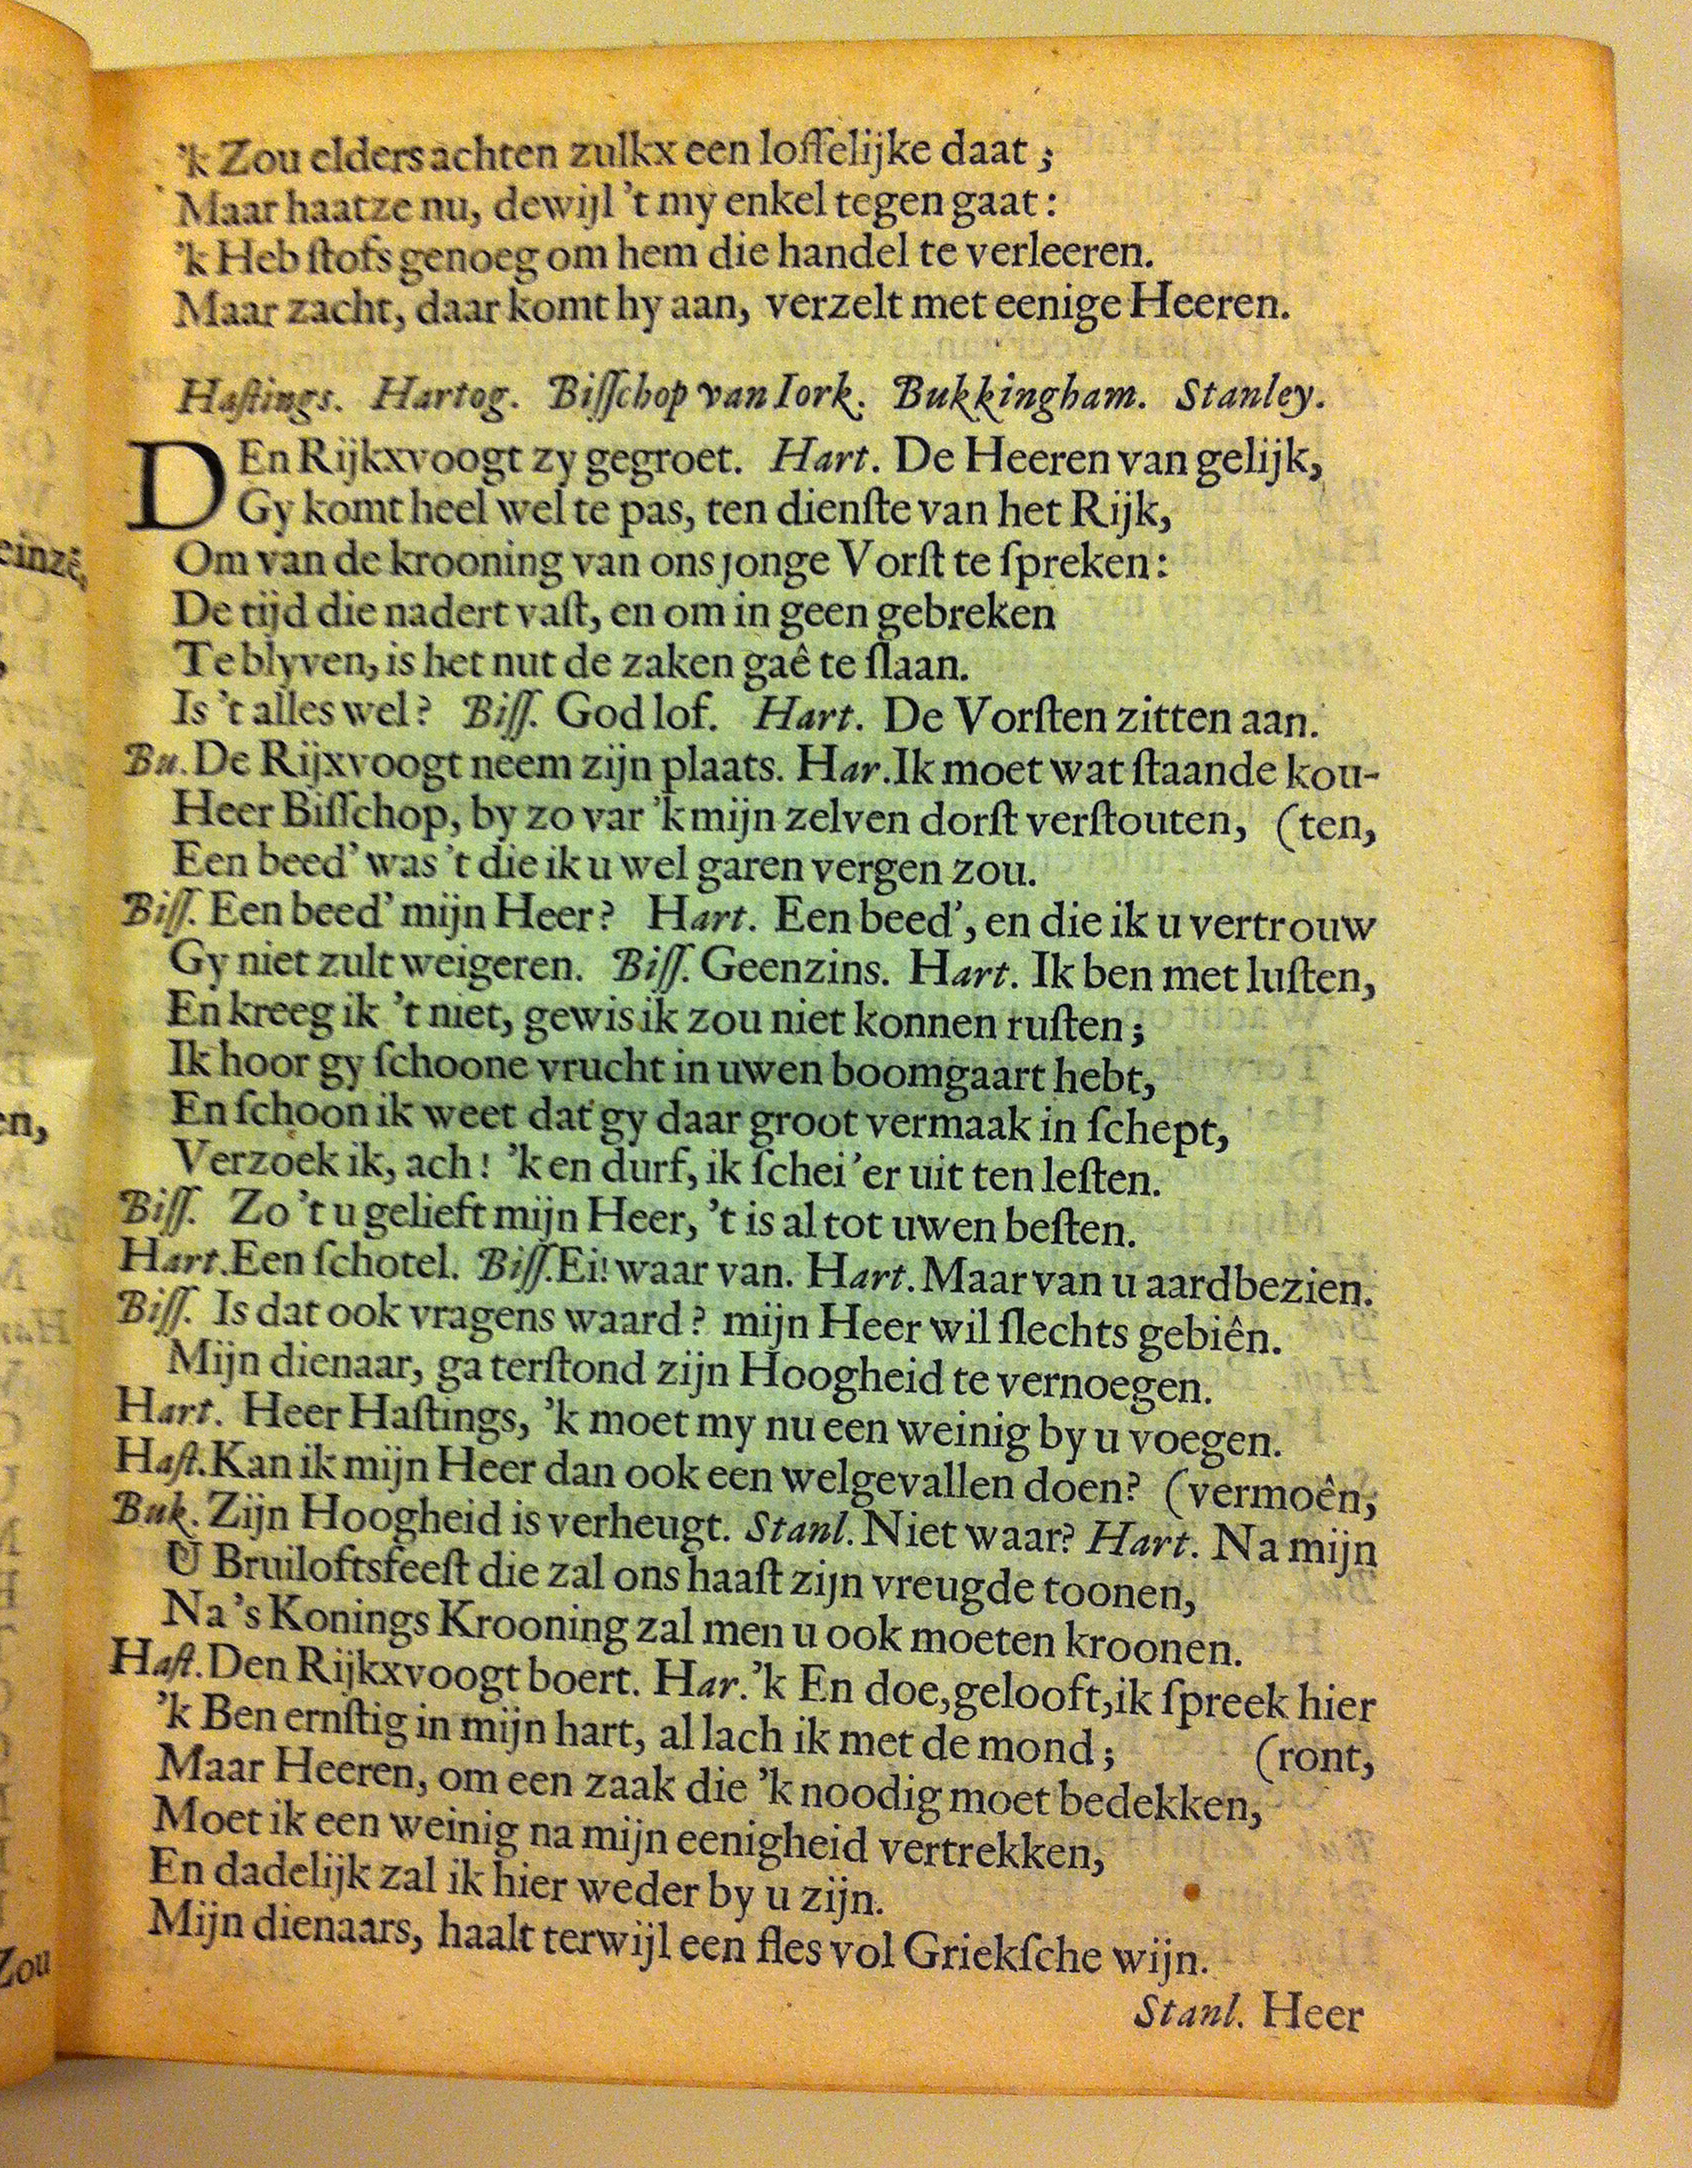 ’k Zou elders achten zulkx een loffelijke daat ;
Maar haatze nu, dewijl ’t my enkel tegen gaat :
’k Heb ſtofs genoeg om hem die handel te verleeren.
Maar zacht, daar komt hy aan, verzelt met eenige Heeren.
Haſtings. Hartog. Biſſchop van Iork. Bukkingham. Stanley.
DEn Rijkxvoogt zy gegroet. Hart. De Heeren van gelijk,
Gy komt heel wel te pas, ten dienſte van het Rijk,
Om van de krooning van ons jonge Vorſt te ſpreken :
De tijd die nadert vaſt, en om in geen gebreken
Te blyven, is het nut de zaken gaê te ſlaan.
Is ’t alles wel ? Biſſ. God lof. Hart. De Vorſten zitten aan.
Bu. De Rijxvoogt neem zijn plaats. Har. Ik moet wat ſtaande kou-
Heer Biſſchop, by zo var ’k mijn zelven dorſt verſtouten, (ten,
Een beed’ was ’t die ik u wel garen vergen zou.
Biſſ. Een beed’ mijn Heer ? Hart. Een beed’, en die ik u vertrouw
Gy niet zult weigeren. Biſſ. Geenzins. Hart. Ik ben met luſten,
En kreeg ik ’t niet, gewis ik zou niet konnen ruſten ;
Ik hoor gy ſchoone vrucht in uwen boomgaart hebt,
En ſchoon ik weet dat gy daar groot vermaak in ſchept,
Verzoek ik, ach ! ’k en durf, ik ſchei ’er uit ten leſten.
Biſſ. Zo ’t u gelieft mijn Heer, ’t is al tot uwen beſten.
Hart. Een ſchotel. Biſſ. Ei! waar van. Hart. Maar van u aardbezien.
Biſſ. Is dat ook vragens waard ? mijn Heer wil ſlechts gebiên.
Mijn dienaar, ga terſtond zijn Hoogheid te vernoegen.
Hart. Heer Haſtings, ’k moet my nu een weinig by u voegen.
Haſt. Kan ik mijn Heer dan ook een welgevallen doen? (vermoên,
Buk. Zijn Hoogheid is verheugt. Stanl. Niet waar? Hart. Na mijn
U Bruiloftsfeeſt die zal ons haaſt zijn vreugde toonen,
Na ’s Konings Krooning zal men u ook moeten kroonen.
Haſt. Den Rijkxvoogt boert. Har. ’k En doe, gelooft, ik ſpreek hier
’k Ben ernſtig in mijn hart, al lach ik met de mond ; (ront,
Maar Heeren, om een zaak die ’k noodig moet bedekken,
Moet ik een weinig na mijn eenigheid vertrekken,
En dadelijk zal ik hier weder by u zijn.
Mijn dienaars, haalt terwijl een fles vol Griekſche wijn.
Stanl. Heer